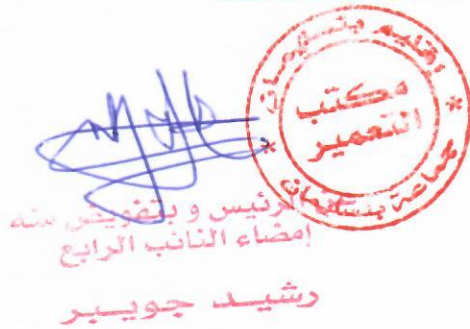 إقليم بنسليمان
مكتب
التعمير
جماعة بنسليمان
الرئيس و بتفويض منه
إمضاء النائب الرابع
رشيد جويبر